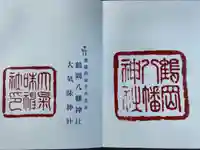 鶴岡
八幡
神社
鶴岡八幡神社
大氣味神社
大氣
味神
社印